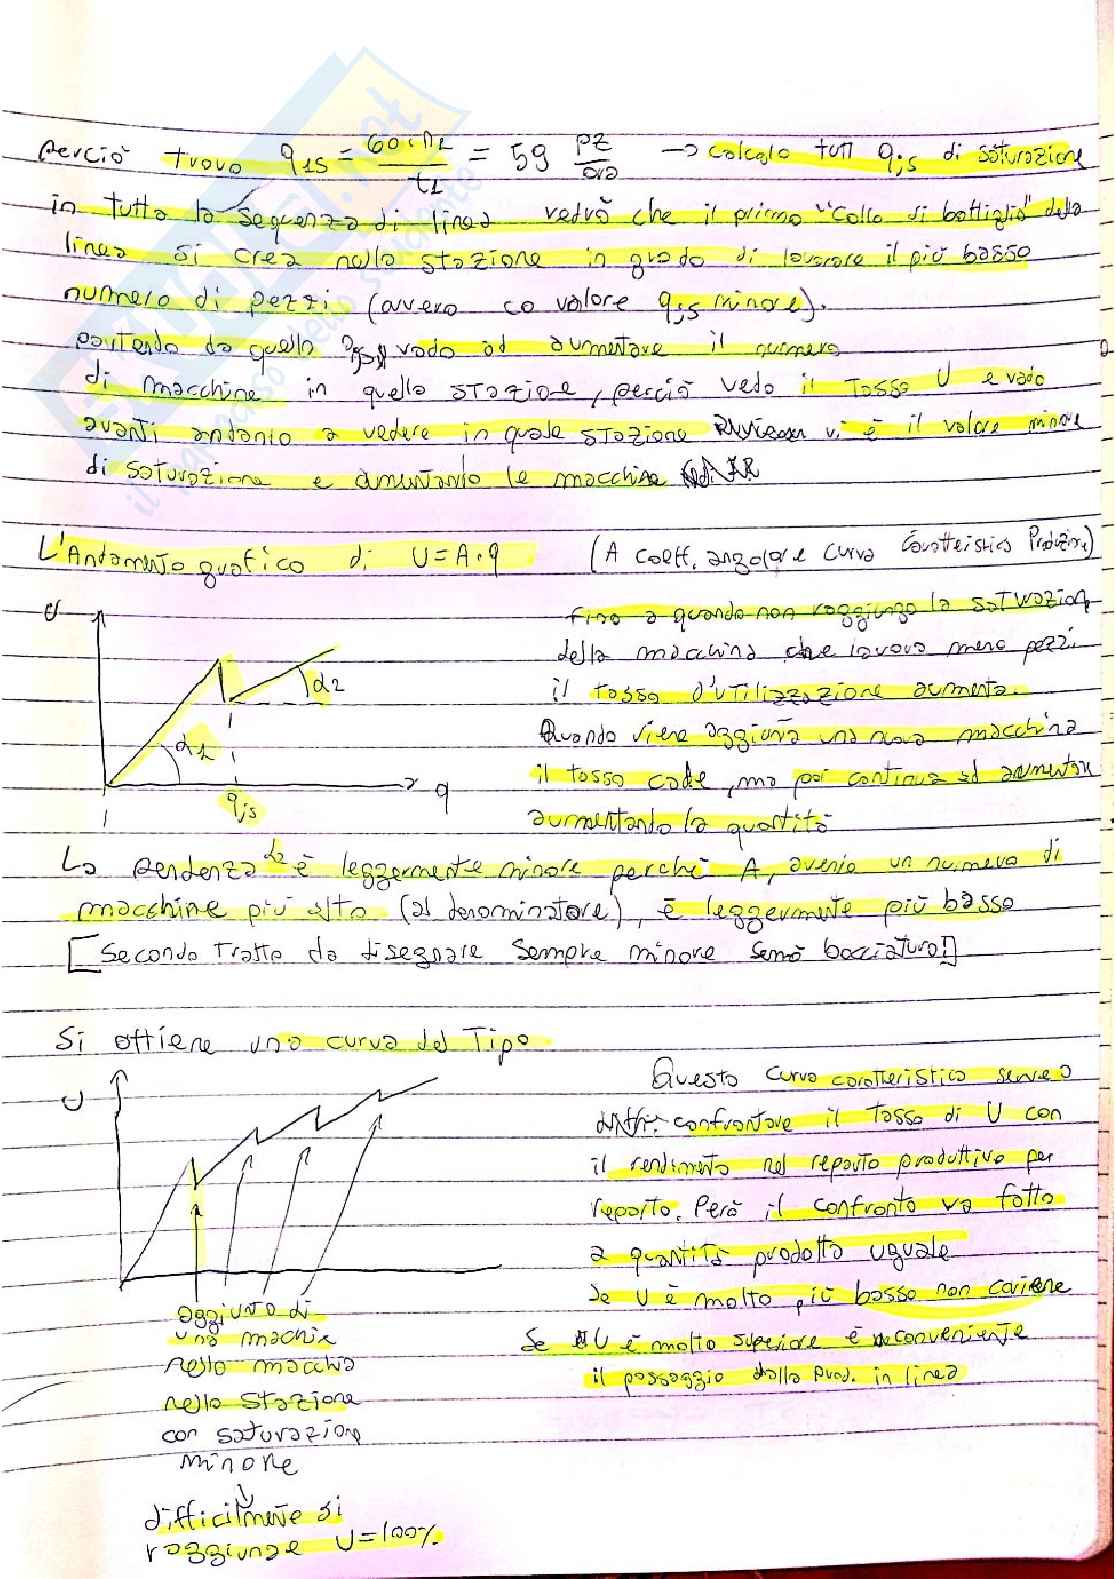 perciò trovo q1s = 60·n1 / t1 = 59 pz/ora → calcolo tutti qjs di saturazione
in tutta la sequenza di linea vedrò che il primo "Collo di bottiglia" della
linea si crea nella stazione in grado di lavorare il più basso
numero di pezzi (ovvero co valore qjs minore).
partendo da quella qjs vado ad aumentare il numero
di macchine in quella stazione, perciò vedo il Tasso U e vado
avanti andando a vedere in quale stazione vi è il valore minore
di saturazione e aumentando le macchine
L'Andamento grafico di U = A·q (A coeff. angolare curva Caratteristica Produzione)
U
α1
α2
qjs
q
fino a quando non raggiungo la saturazion
della macchina che lavora meno pezzi
il tasso d'utilizzazione aumenta.
Quando viene aggiunta una nuova macchina
il tasso cade, ma poi continua ad aumentare
aumentando la quantità
La pendenza α2 è leggermente minore perché A, avendo un numero di
macchine più alto (al denominatore), è leggermente più basso
[Secondo Tratto da disegnare sempre minore sennò bocciatura!]
Si ottiene una curva del Tipo
U
Questa curva caratteristica serve a
confrontare il Tasso di U con
il rendimento nel reparto produttivo per
reparto. Però il confronto va fatto
a quantità prodotta uguale
Se U è molto più basso non conviene
Se U è molto superiore è conveniente
il passaggio dalla Prod. in linea
aggiunta di
una machin
nella macchia
nella stazione
con saturazione
minore
difficilmente si
raggiunge U = 100%